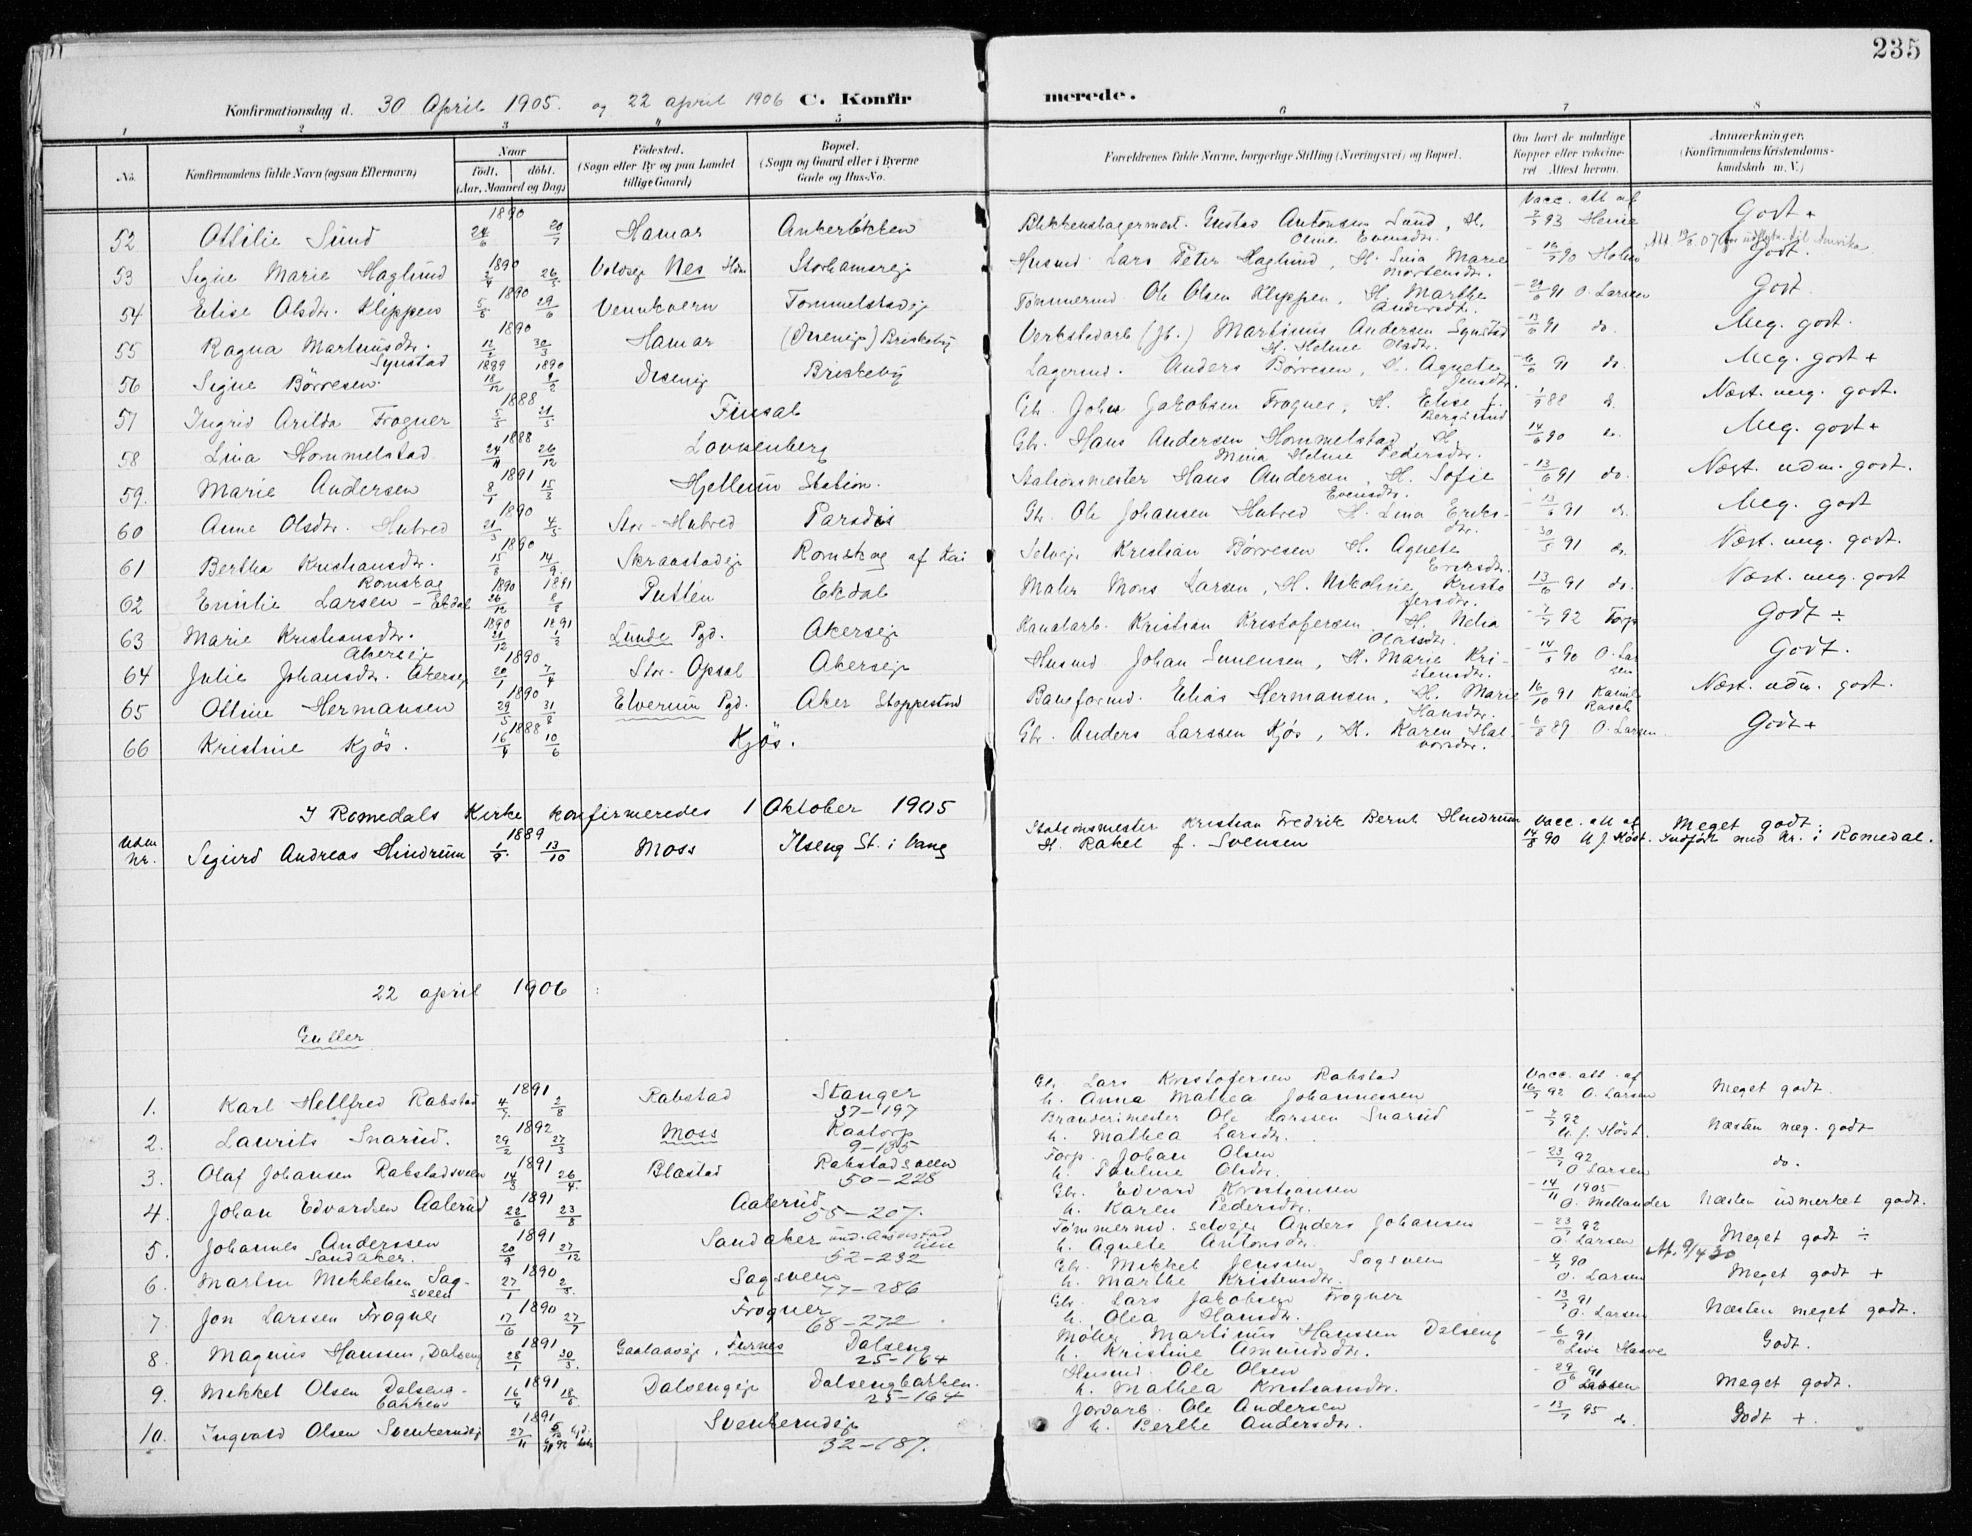 235
Konfirmationsdag d. 30 April 1905. og 22 april 1906 C. Konfirmerede.
1 2 3 4 5 6 7 8
No. Konfirmandens fulde Navn (ogsaa Efternavn)
Naar født. døbt. (Aar, Maaned og Dag)
Fødested. (Sogn eller By og paa Landet tillige Gaard)
Bopæl. (Sogn og Gaard eller i Byerne Gade og Hus-No.
Forældrenes fulde Navne, borgerlige Stilling (Næringsvei) og Bopæl.
Om havt de naturlige Kopper eller vaccineret. Attest herom.
Anmærkninger. (Konfirmandens Kristendomskundskab m. V.)
52 Ottilie Sund 1890 24/6 20/7 Hamar Ankerløkken Blikkenslagermest. Gustav Antonsen Sund, H. Oline Evensdtr. Vacc. att. af 93 Godt +
53 Signe Marie Haglund 1890 26/5 Nes Storhamareje Husmd Lars Peter Haglund, H. Marie Mortensdtr. 90 Holm Godt.
54 Elise Olsdtr. Klippen 1890 5/5 29/6 Vennkvern Tommelstadeje Tømmermd Ole Olsen Klyppen, H. Marthe Andersdtr. 91 O. Larsen Godt
55 Ragna Martinusdtr. Synstad 1890 12/2 30/3 Hamar Briskeby Verkstedarb (Jb.) Martinus Andersen Synstad H. Helene Olsdtr. 13/6 91 do. Meg. godt.
56 Signe Børresen. 1889 18/12 1890 9/2 Diseneje Briskeby Lagermd. Anders Børresen, H. Agnete Jensdtr. 91 do. Meg. godt +
57 Ingrid Arilda Frogner 1888 5/5 21/5 Finsal Gbr. Johs Jakobsen Frogner, H. Elise f. Bergstrand 88 Næst. meg. godt.
58 Lina Hommelstad 1888 24/11 26/12 Lovnenberg Gbr. Hans Andersen Hommelstad, H. Mina Helene Pedersdtr. 14/6 90 Meg. godt +
59. Marie Andersen 1891 8/1 15/3 Hjellum Station. Stationsmester Hans Andersen, H. Sofie Evensdtr. 13/6 91 do. Næst. udm. godt.
60 Anne Olsdtr. Hubred 1890 21/3 4/5 Stor-Hubred Paradis Gbr. Ole Johansen Hubred H. Lina Eriksdtr. 13/6 91 Meg. godt
61 Bertha Kristiansdtr. Romskog 1890 15/8 14/9 Skraastadeje Romskog af Kai Selvej. Kristian Børresen H. Agnete Eriksdtr. 30/5 91 Næst. meg. godt.
62 Emilie Larsen - Ekdal 1890 26/12 1891 8/8 Putten Ekdal Maler Mons Larsen, H. Nikoline Kristofersdtr. 13/6 91 do. Næst. meg. godt
63 Marie Kristiansdtr. Akerseje 1890 21/12 1891 Lunde Pgd. Akerseje Kanalarb. Kristian Kristofersen H. Olavsdtr. 92 Torp Godt ÷
64 Julie Johansdtr. Akerseje 1890 20/1 7/4 Stor-Opsal Akerseje Husmd Johan Simensen, H. Marie Kristensdtr. 14/5 90 O. Larsen Godt.
65 Ottine Hermansen 1890 29/5 31/8 Elverum Pgd. Aker Stoppested Baneformd. Elias Hermansen, H. Marie Hansdtr. 16/10 91 Rasch Næst. udm. godt.
66 Kristine Kjøs. 1888 16/4 10/6 Kjøs. Gbr. Anders Larssen Kjøs, H. Karen Halvorsdtr. 6/8 89 O. Larsen Godt +
I Romedals Kirke konfirmeredes 1 Oktober 1905
Uden Nr. Sigurd Andreas Hindrum 1889 1/9. 13/10 Moss Ilseng St. i Vang Stationsmester Kristian Fredrik Bernt Hindrum H. Rakel f. Svensen Vacc. att. af 14/8 90 Meget godt. Indført med Nr. i Romedal.
22 april 1906
Gutter
1. Karl Hellfred Rabstad 1891 2/8 Rabstad Stanger 37-197 Gbr. Lars Kristofersen Rabstad h. Anna Mathea Johannessen Vacc. att. af 92 O. Larsen Meget godt.
2. Laurits Snarud. 1892 29/2 27/3 Moss Kaatorp 9-135 Brænderimester Ole Larssen Snarud h. Mathea Larsdtr. 92 Høst. Næsten meg. godt
3. Olaf Johansen Rabstadsveen 1891 14/3 26/4 Blæstad Rabstadsveen 50-228 Torp. Johan Olsen h. Pauline Olsdtr. 92 O Larsen do.
4. Johan Edvardsen Aalerud 1891 22/6 23/8 Aalerud 55-207. Gbr. Edvard Kristiansen h. Karen Pedersdtr. 14/11 1905 O. Mellander Næsten udmerket godt.
5. Johannes Anderssen Sandaker. 1891 20/9 27/12 Sandaker 52-232 Tømmermd. selvejer Anders Johansen h. Agnete Antonsdtr. 92 O. Larsen Meget godt ÷
6. Martin Mikkelsen Sagsveen 1890 27/1 2/3. Sagsveen 77-286 Gbr. Mikkel Jenssen Sagsveen h. Marthe Kristensdtr. 90 O. Larsen Meget godt +
7. Jon Larssen Frogner 1890 17/6 27/7 Frogner 68-272 Gbr. Lars Jakobsen Frogner h. Olea Hansdtr. 91 O. Larsen Næsten meget godt.
8. Magnus Hanssen, Dalseng 1891 28/1 30/3. Furnes Dalseng 25-164 Møller Martinus Hanssen Dalseng h. Kristine Amundsdtr. 91 Godt.
9. Mikkel Olsen Dalsengbakken 1891 16/4 18/6 Dalsengeje Dalsengbakken. 25-164 Husmd Ole Olsen h. Mathea Kristiansdtr. 29/6 91 O Larsen Meget godt.
10. Ingvald Olsen Svenkerudeje 1891 27/11 Svenkerudeje 32-187. Jordarb. Ole Andersen h. Berthe Andersdtr. 95 do. Godt +